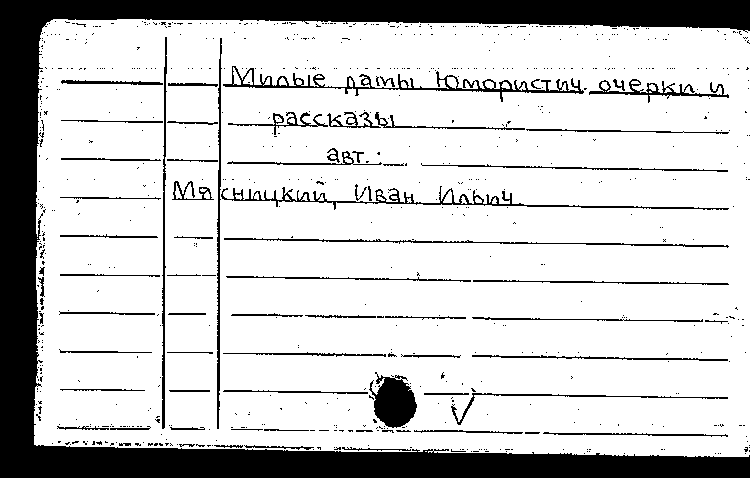 Милые дамы. Юмористич. очерки и
рассказы
авт.:
Мясницкий, Иван Ильич